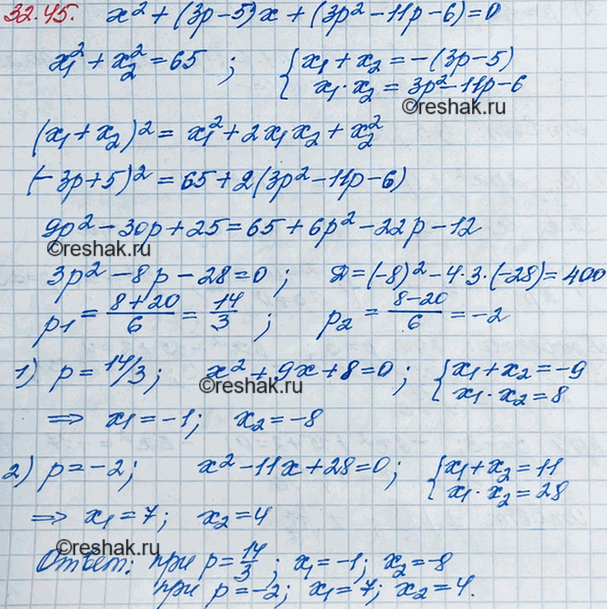 32.45. x² + (3p-5)x + (3p²-11p-6)=0
x₁² + x₂² = 65 ; { x₁ + x₂ = -(3p-5)
x₁·x₂ = 3p²-11p-6
©reshak.ru
(x₁+x₂)² = x₁² + 2x₁x₂ + x₂²
(-3p+5)² = 65+2(3p²-11p-6)
9p²-30p+25=65+6p²-22p-12
©reshak.ru
3p²-8p-28=0 ; D=(-8)²-4·3·(-28)=400
p₁ = (8+20)/6 = 14/3 ; p₂ = (8-20)/6 = -2
1) p = 14/3 ; x² + 9x + 8 = 0 ; { x₁ + x₂ = -9
x₁·x₂ = 8
©reshak.ru
⇒ x₁ = -1; x₂ = -8
2) p = -2 ; x² - 11x + 28 = 0 ; { x₁ + x₂ = 11
x₁·x₂ = 28
⇒ x₁ = 7; x₂ = 4
©reshak.ru
Ответ: при p = 14/3 ; x₁ = -1; x₂ = -8
при p = -2; x₁ = 7; x₂ = 4.
©reshak.ru